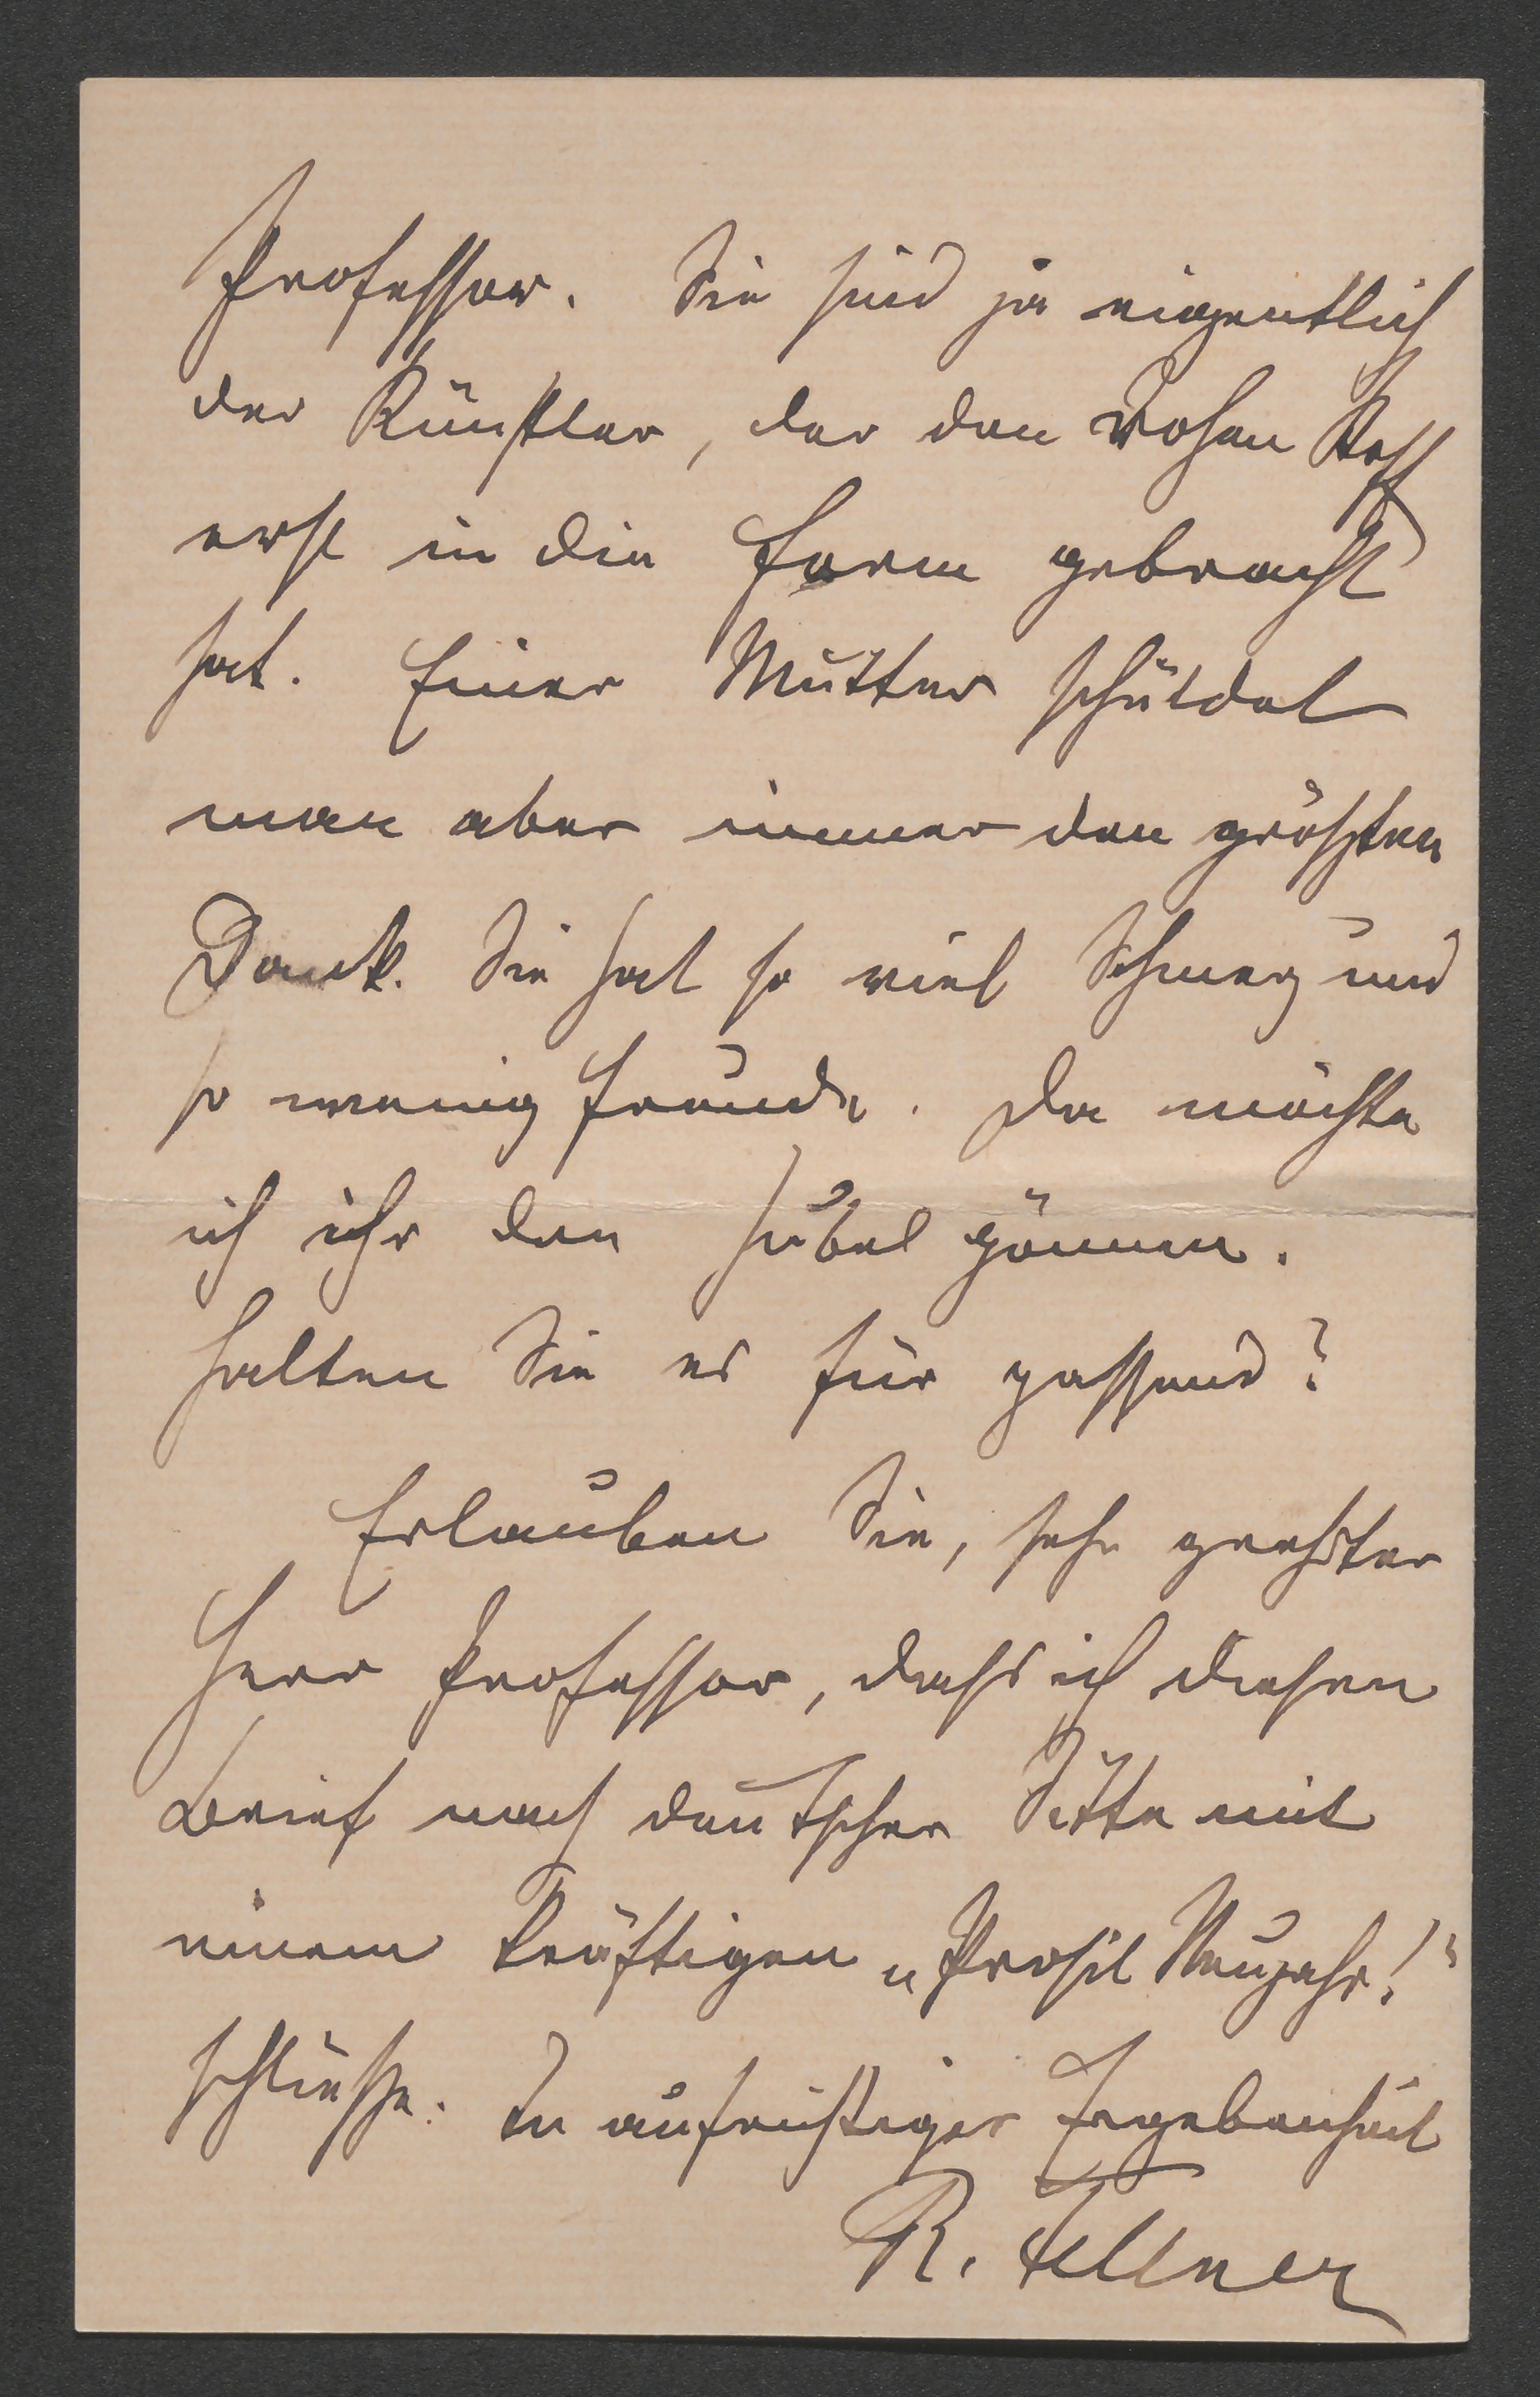 Professor. Sie sind ja eigentlich
der Künstler, der den rohen Stoff
erst in die Form gebracht
hat. Einer Mutter schuldet
man aber immer den größten
Dank. Sie hat so viel Schmerz und
so wenig Freude. Da möchte
ich ihr den Jubel gönnen.
Halten Sie es für passend?
Erlauben Sie, sehr geehrter
Herr Professor, dass ich diesen
Brief nach deutscher Sitte mit
einem kräftigen „Prosit Neujahr!“
schließe. In aufrichtiger Ergebenheit
R. Fellner